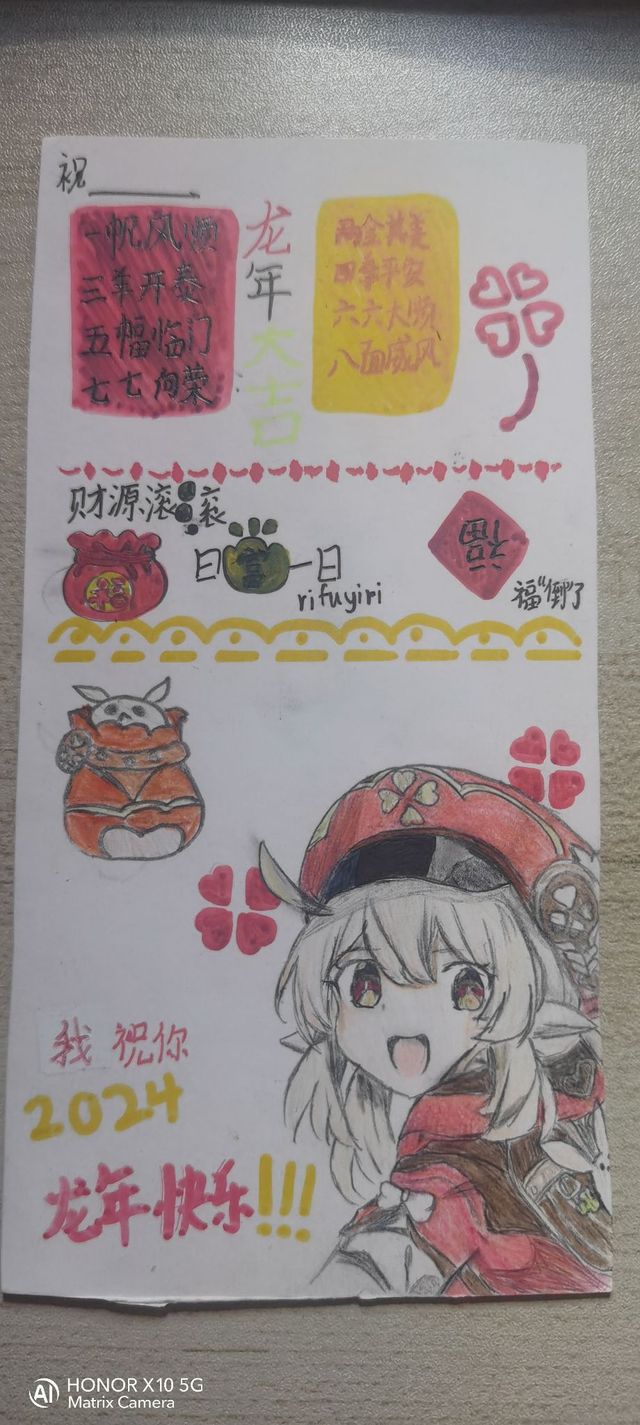 祝
一帆风顺
三羊开泰
五幅临门
七七向荣
龙年大吉
两全其美
四季平安
六六大顺
八面威风
财源滚滚
福
日富一日
rifuyiri
福
福“倒”了
我 祝你
2024
龙年快乐!!!
AI
HONOR X10 5G
Matrix Camera